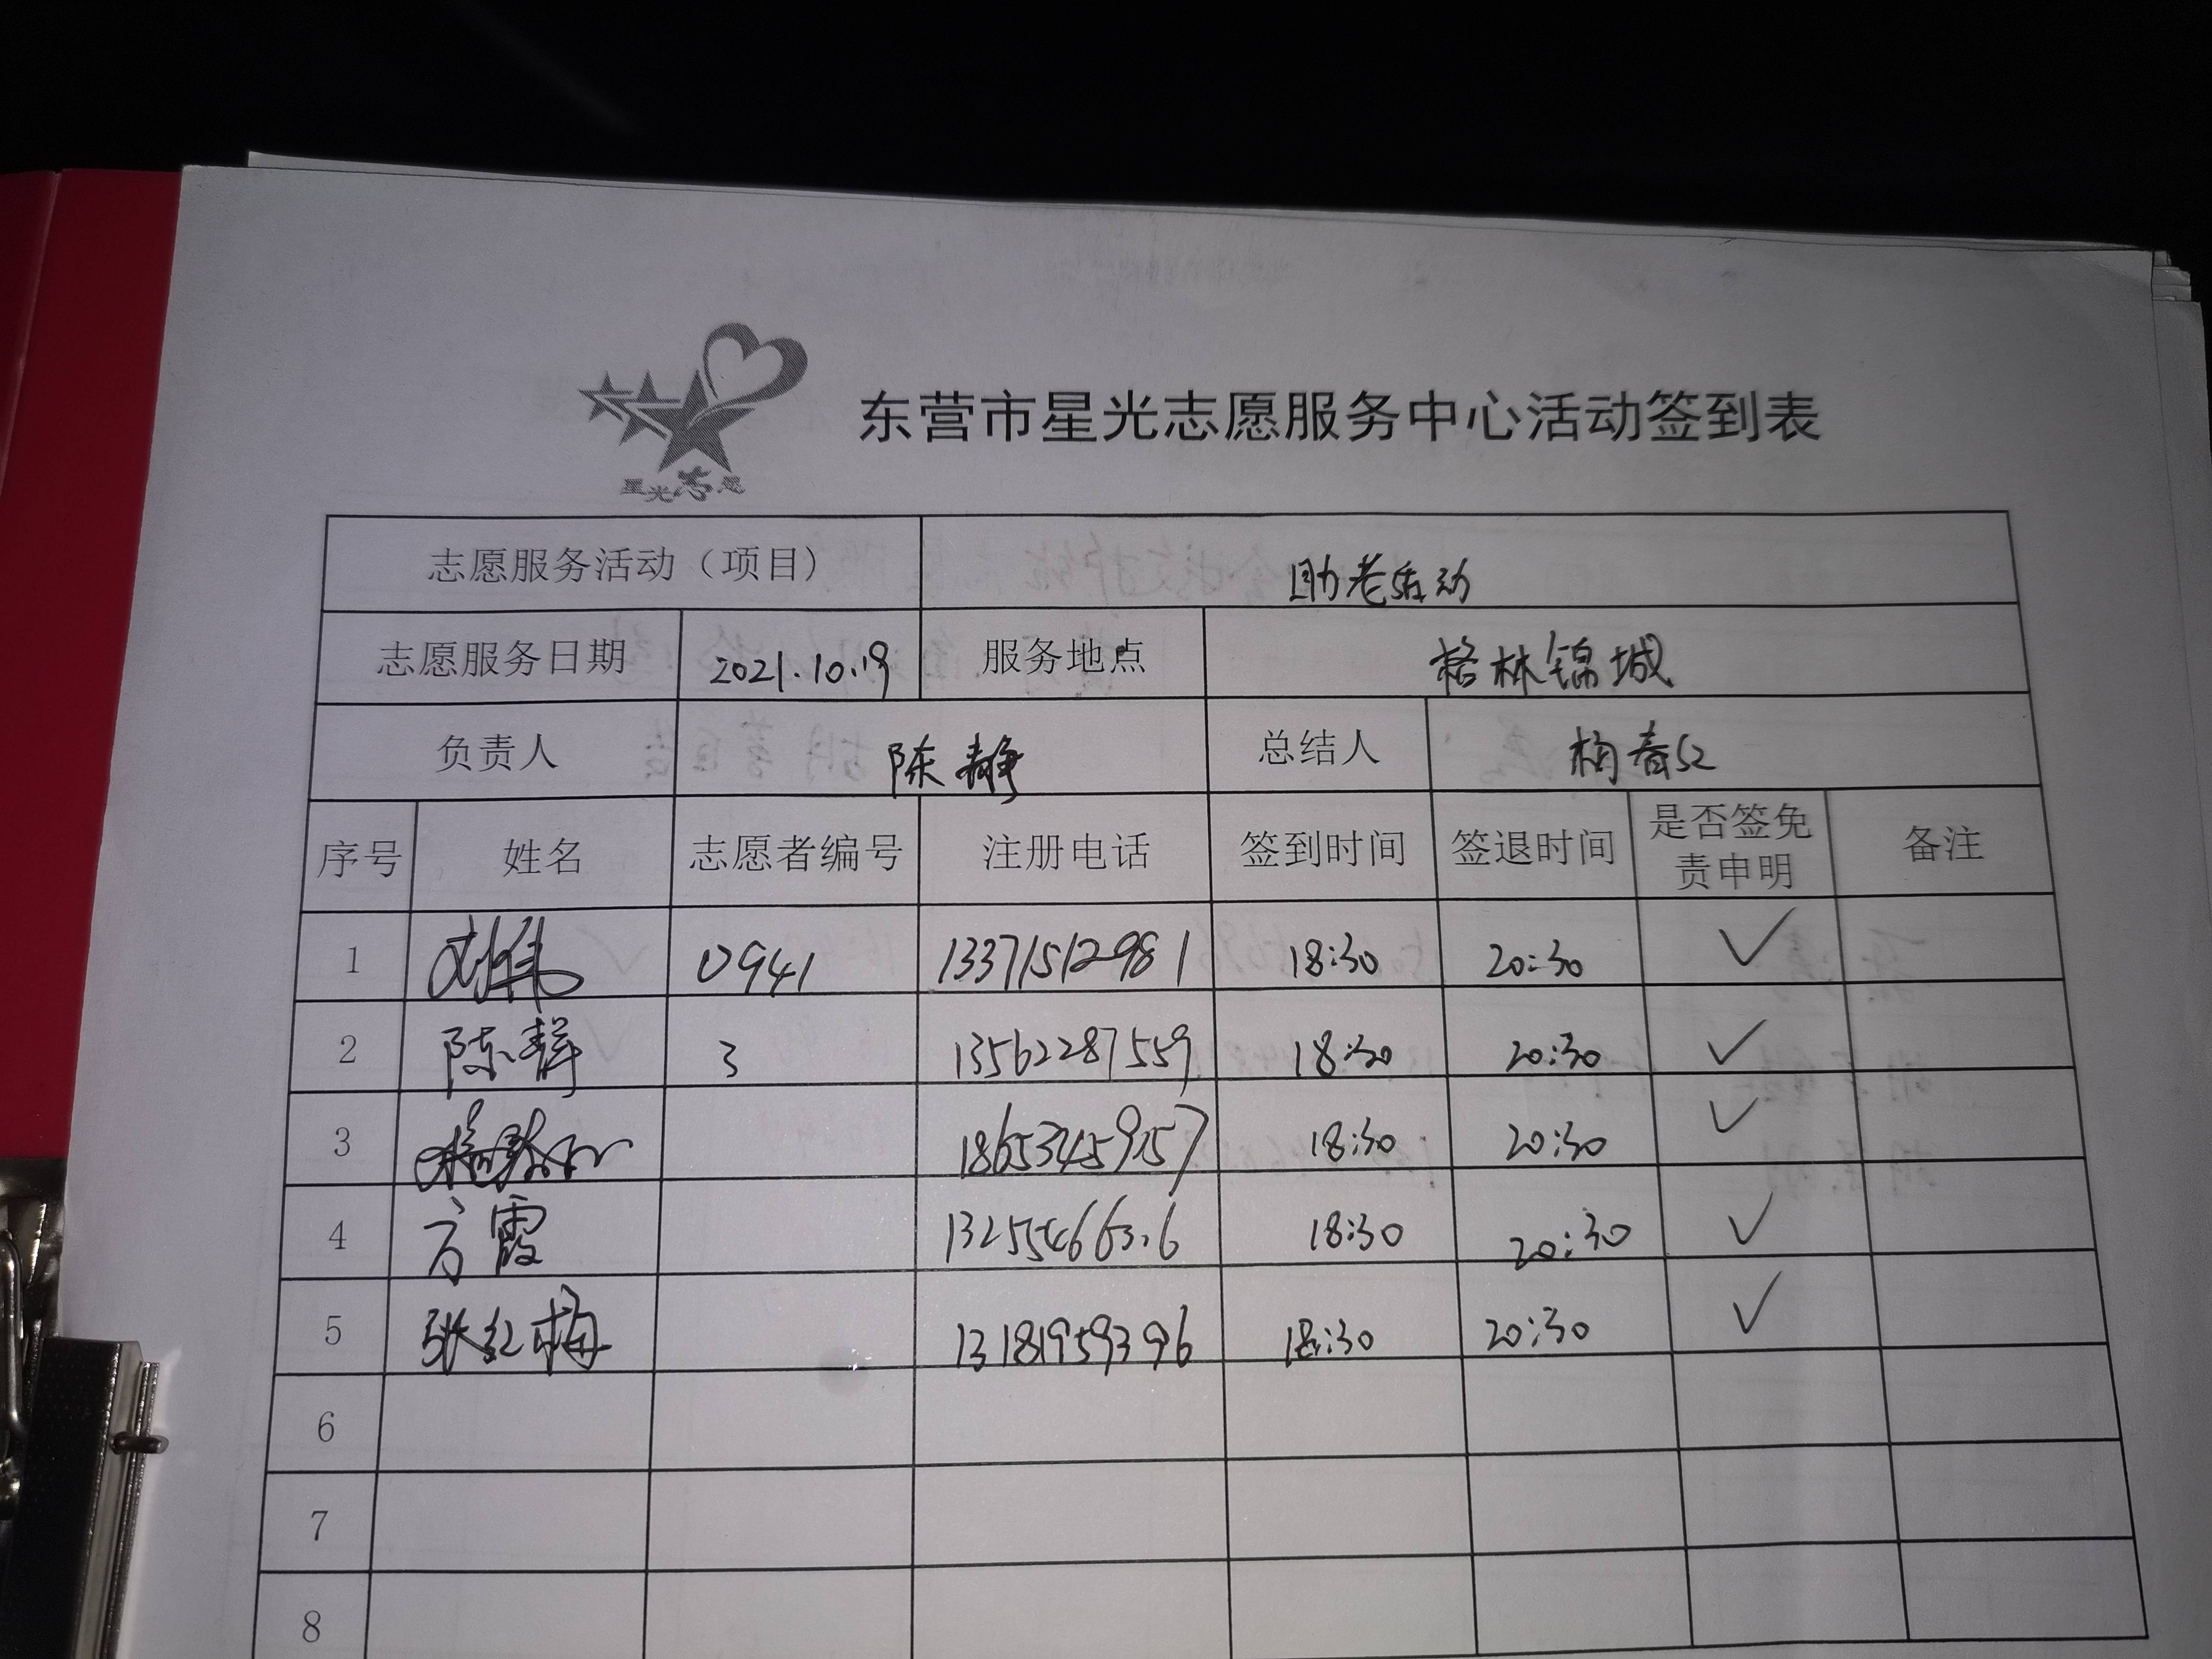 星光志愿
东营市星光志愿服务中心活动签到表
志愿服务活动（项目） 助老活动
志愿服务日期 2021.10.19 服务地点 格林锦城
负责人 陈静 总结人 杨春红
序号 姓名 志愿者编号 注册电话 签到时间 签退时间 是否签免责申明 备注
1 刘伟 0941 13371512981 18:30 20:30 ✓
2 陈静 3 13562287559 18:30 20:30 ✓
3 18653745957 18:30 20:30 ✓
4 方霞 18:30 20:30 ✓
5 张红梅 13181959396 18:30 20:30 ✓
6
7
8